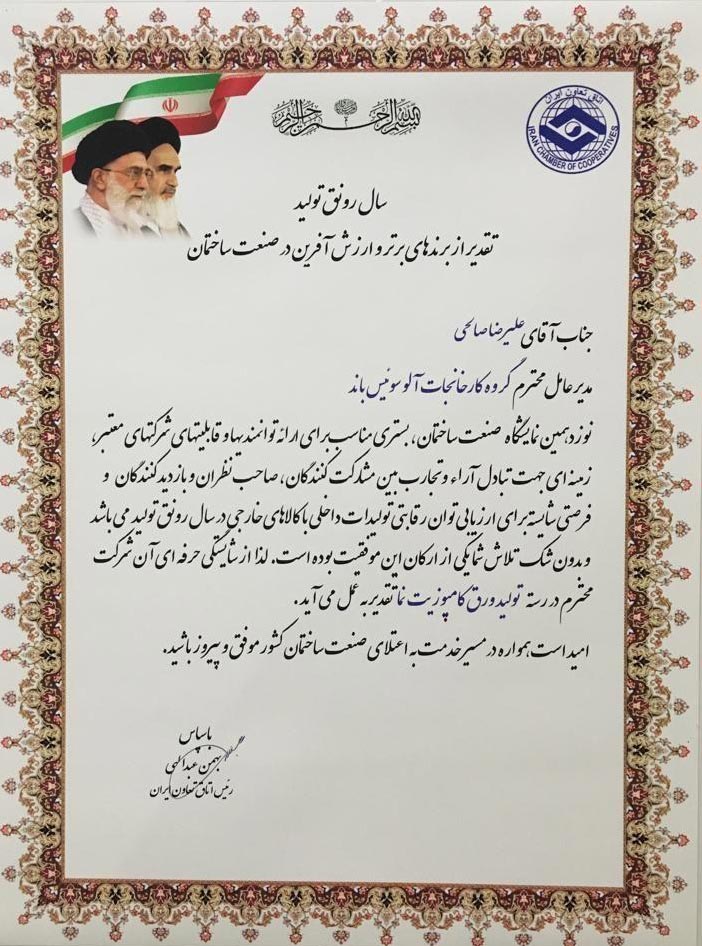 بسم الله الرحمن الرحیم
اتاق تعاون ایران
IRAN CHAMBER OF COOPERATIVES
سال رونق تولید
تقدیر از برندهای برتر و ارزش آفرین در صنعت ساختمان
جناب آقای علیرضا صالحی
مدیر عامل محترم گروه کارخانجات آلوسوئیس باند
نوزدهمین نمایشگاه صنعت ساختمان، بستری مناسب برای ارائه توانمندیها و قابلیتهای شرکتهای معتبر،
زمینه ای جهت تبادل آراء و تجارب بین مشارکت کنندگان، صاحب نظران و بازدیدکنندگان و
فرصتی شایسته برای ارزیابی توان رقابتی تولیدات داخلی با کالاهای خارجی در سال رونق تولید می باشد
و بدون شک تلاش شما یکی از ارکان این موفقیت بوده است. لذا از شایستگی حرفه ای آن شرکت
محترم در رسته تولید ورق کامپوزیت نما تقدیر به عمل می آید.
امید است همواره در مسیر خدمت به اعتلای صنعت ساختمان کشور موفق و پیروز باشید.
با سپاس
بهمن عبدالهی
رئیس اتاق تعاون ایران